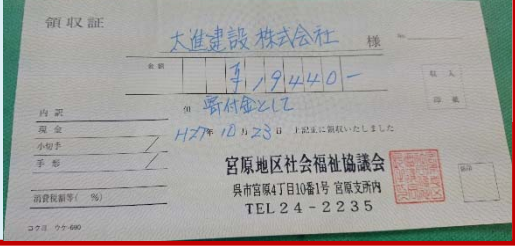 領収証
大進建設株式会社 様
No.
金額 ¥19440-
収入
印紙
但 寄付金として
内訳
H27年10月23日 上記正に領収いたしました
現金
小切手
手形
宮原地区社会福祉協議会
呉市宮原4丁目10番1号 宮原支所内
消費税額等( %)
TEL24-2235
コクヨ ウケ-680